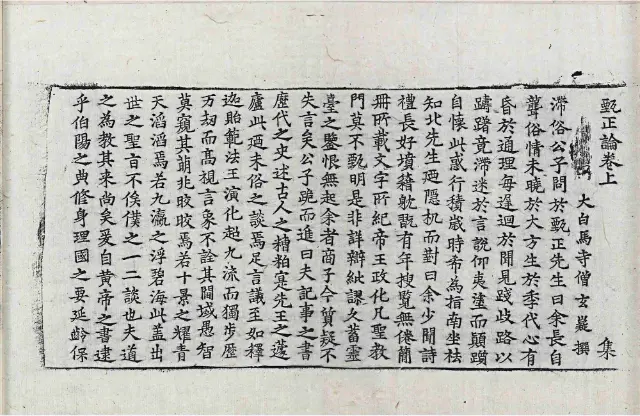 甄正論卷上
大白馬寺僧玄嶷撰 集
滯俗公子問於甄正先生曰余長自
聾俗情未曉於大方生於季代心有
昏於通理每遲迴於聞見踐歧路以
躊躇竟滯迷於言說仰夷塗而顛躓
自懷此惑行積歲時希為指南坐袪
知北先生迺隱机而對曰余少閱詩
禮長好墳籍躭翫有年搜覽無倦簡
冊所載文字所紀帝王政化凡聖教
門莫不甄明是非詳辯紕謬久蓄靈
臺之鑒恨無起余者商子今質疑不
失言矣公子跪而進曰夫記事之書
歷代之史述古人之糟粕寔先王之蘧
廬此迺末俗之談焉足言議至如釋
迦貽範法王演化超九流而獨步歷
万劫而高視言象不詮其閫域愚智
莫窺其萌兆皎皎焉若十景之耀青
天滔滔焉若九瀛之浮碧海此蓋出
世之聖言不俟僕之一二談也夫道
之為教其來尚矣爰自黃帝之書逮
乎伯陽之典修身理國之要延齡保